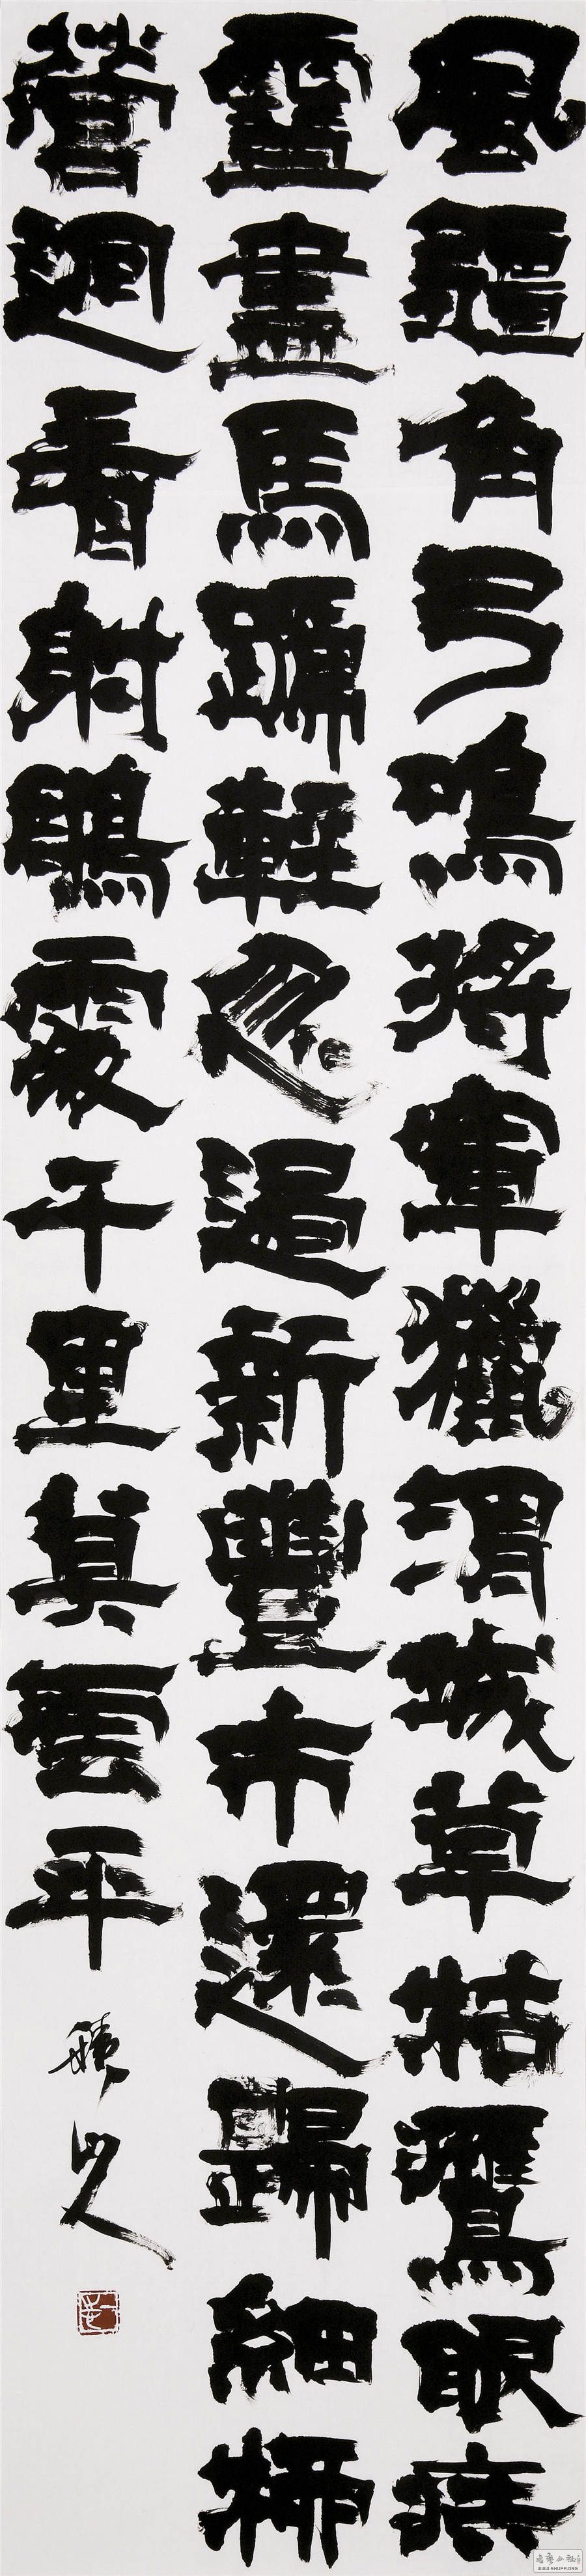 風角弓鳴將軍獵渭城草枯鷹眼疾
雪盡馬蹄輕忽過新豐市還歸細柳
營迴看射鵰處千里莫雲平
WWW.SHUFA.ORG